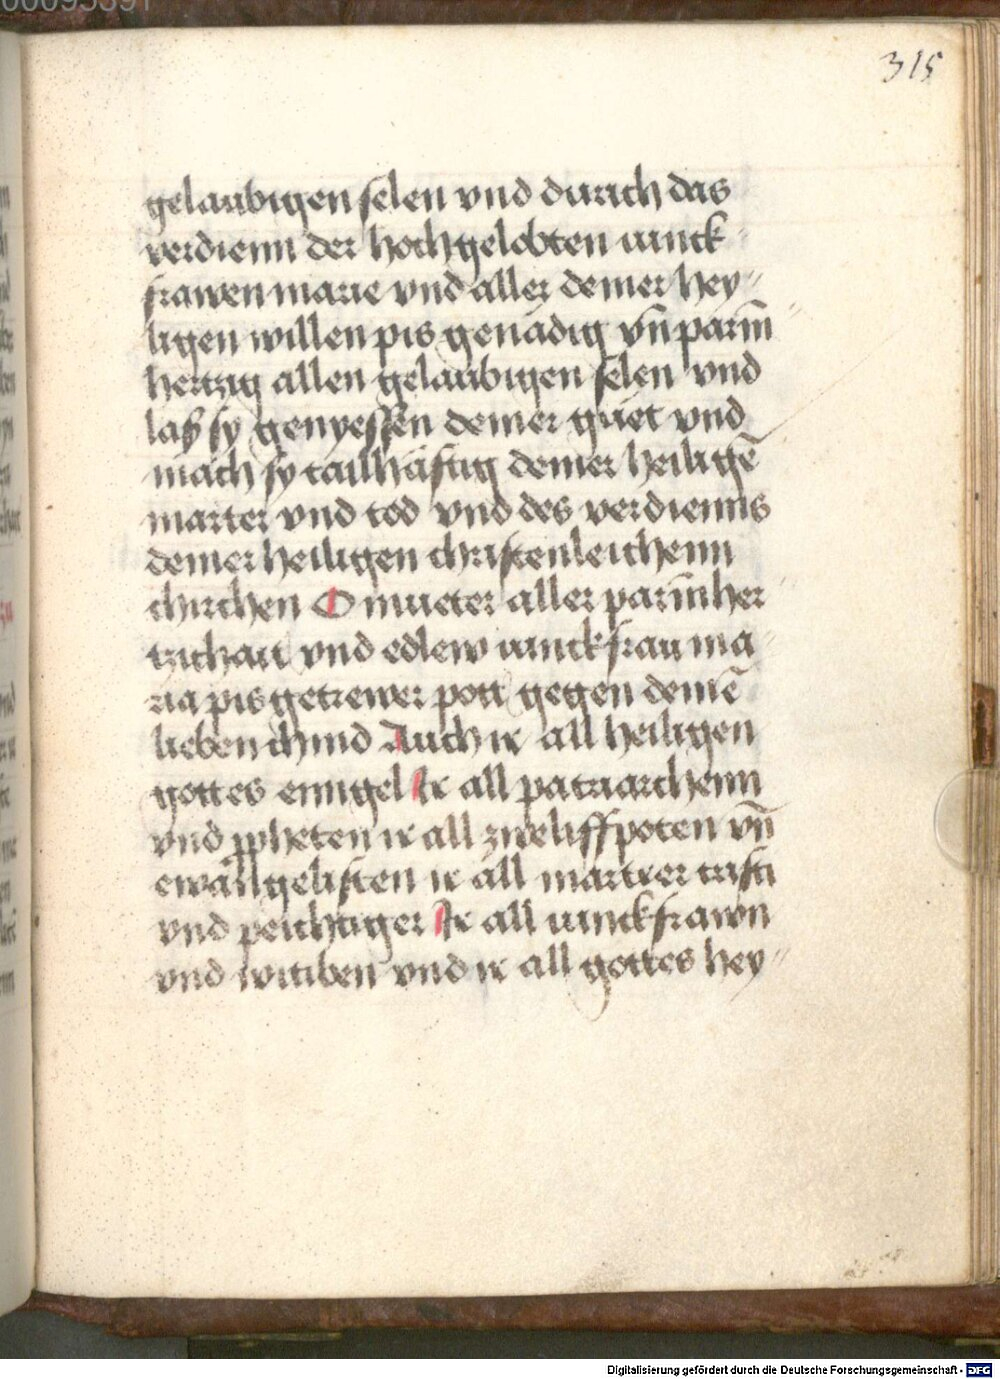 00095391
315
gelaubigen selen vnd durich das
verdienn der hochgelobten iunck
frawen marie vnd aller deiner hey-
ligen willen pis genadig vn̄ parm̄
hertzig allen gelaubigen selen vnd
laß sy genyessen deiner guet vnd
mach sy tailhaftig deiner heiligē
marter vnd tod vnd des verdienns
deiner heiligen christenleichenn
chirchen O mueter aller parm̄her
tzichait vnd edlew iunckfrau ma
ria pis getrewer pott gegen deinē
lieben chind Auch ir all heiligen
gottes enngel Ir all patriarchenn
vnd ppheten ir all zweliffpoten vn̄
ewangelisten ir all martrer cristi
vnd peichtiger Ir all iunckfrawn
vnd wittiben vnd ir all gottes hey-
Digitalisierung gefördert durch die Deutsche Forschungsgemeinschaft - DFG